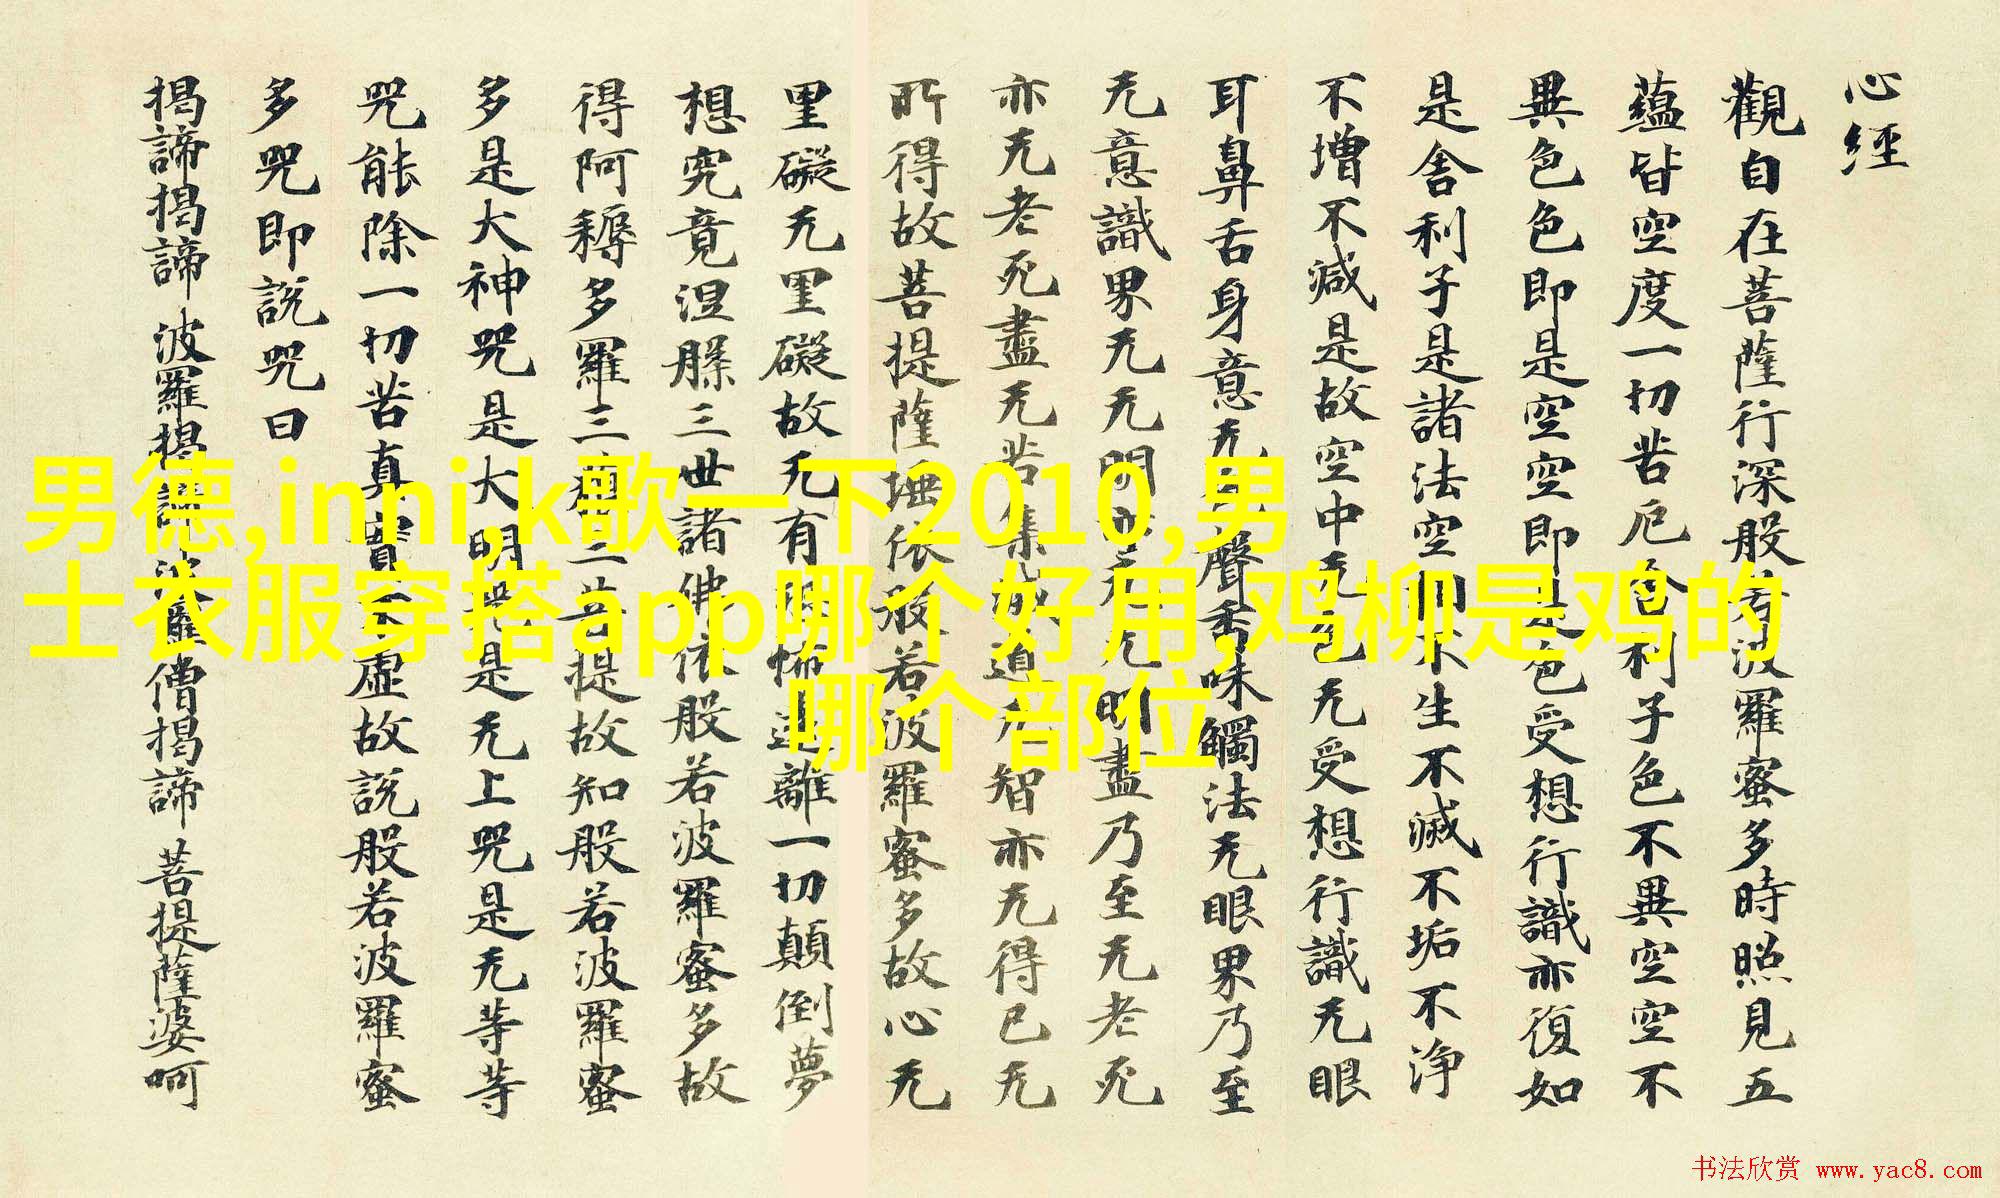 心經
觀自在菩薩行深般若波羅蜜多時照見五
蘊皆空度一切苦厄舍利子色不異空空不
異色色即是空空即是色受想行識亦復如
是舍利子是諸法空相不生不滅不垢不净
不增不減是故空中无色无受想行識无眼
耳鼻舌身意无色聲香味觸法无眼界乃至
无意識界无无明亦无无明盡乃至无老死
亦无老死盡无苦集滅道无智亦无得已无
所得故菩提薩埵依般若波羅蜜多故心无
罣礙无罣礙故无有恐怖遠離一切顛倒夢
想究竟涅槃三世諸佛依般若波羅蜜多故
得阿耨多羅三藐三菩提故知般若波羅蜜
多是大神咒是大明咒是无上咒是无等等
咒能除一切苦真實不虛故說般若波羅蜜
多咒即說咒曰
揭諦揭諦 波羅揭諦 波羅僧揭諦 菩提薩婆呵
男德,inni,k歌一下2010,男
士衣服穿搭app哪个好用,鸡柳是鸡的
哪个部位
书法欣赏 www.yac8.com